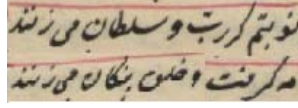 نوبتم گر رب و سلطان می زنند
مه گرفت و خلق پنگان می زنند